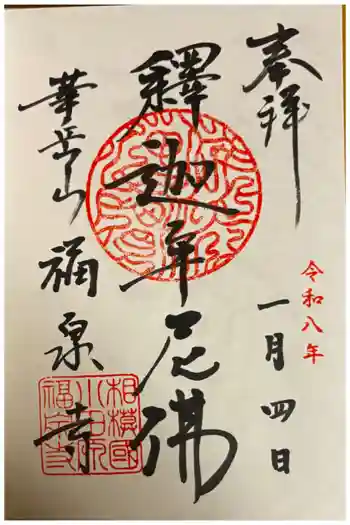 奉拝
令和八年
一月四日
釋迦牟尼佛
華岳山
福泉寺
相模國
小田原
福泉寺